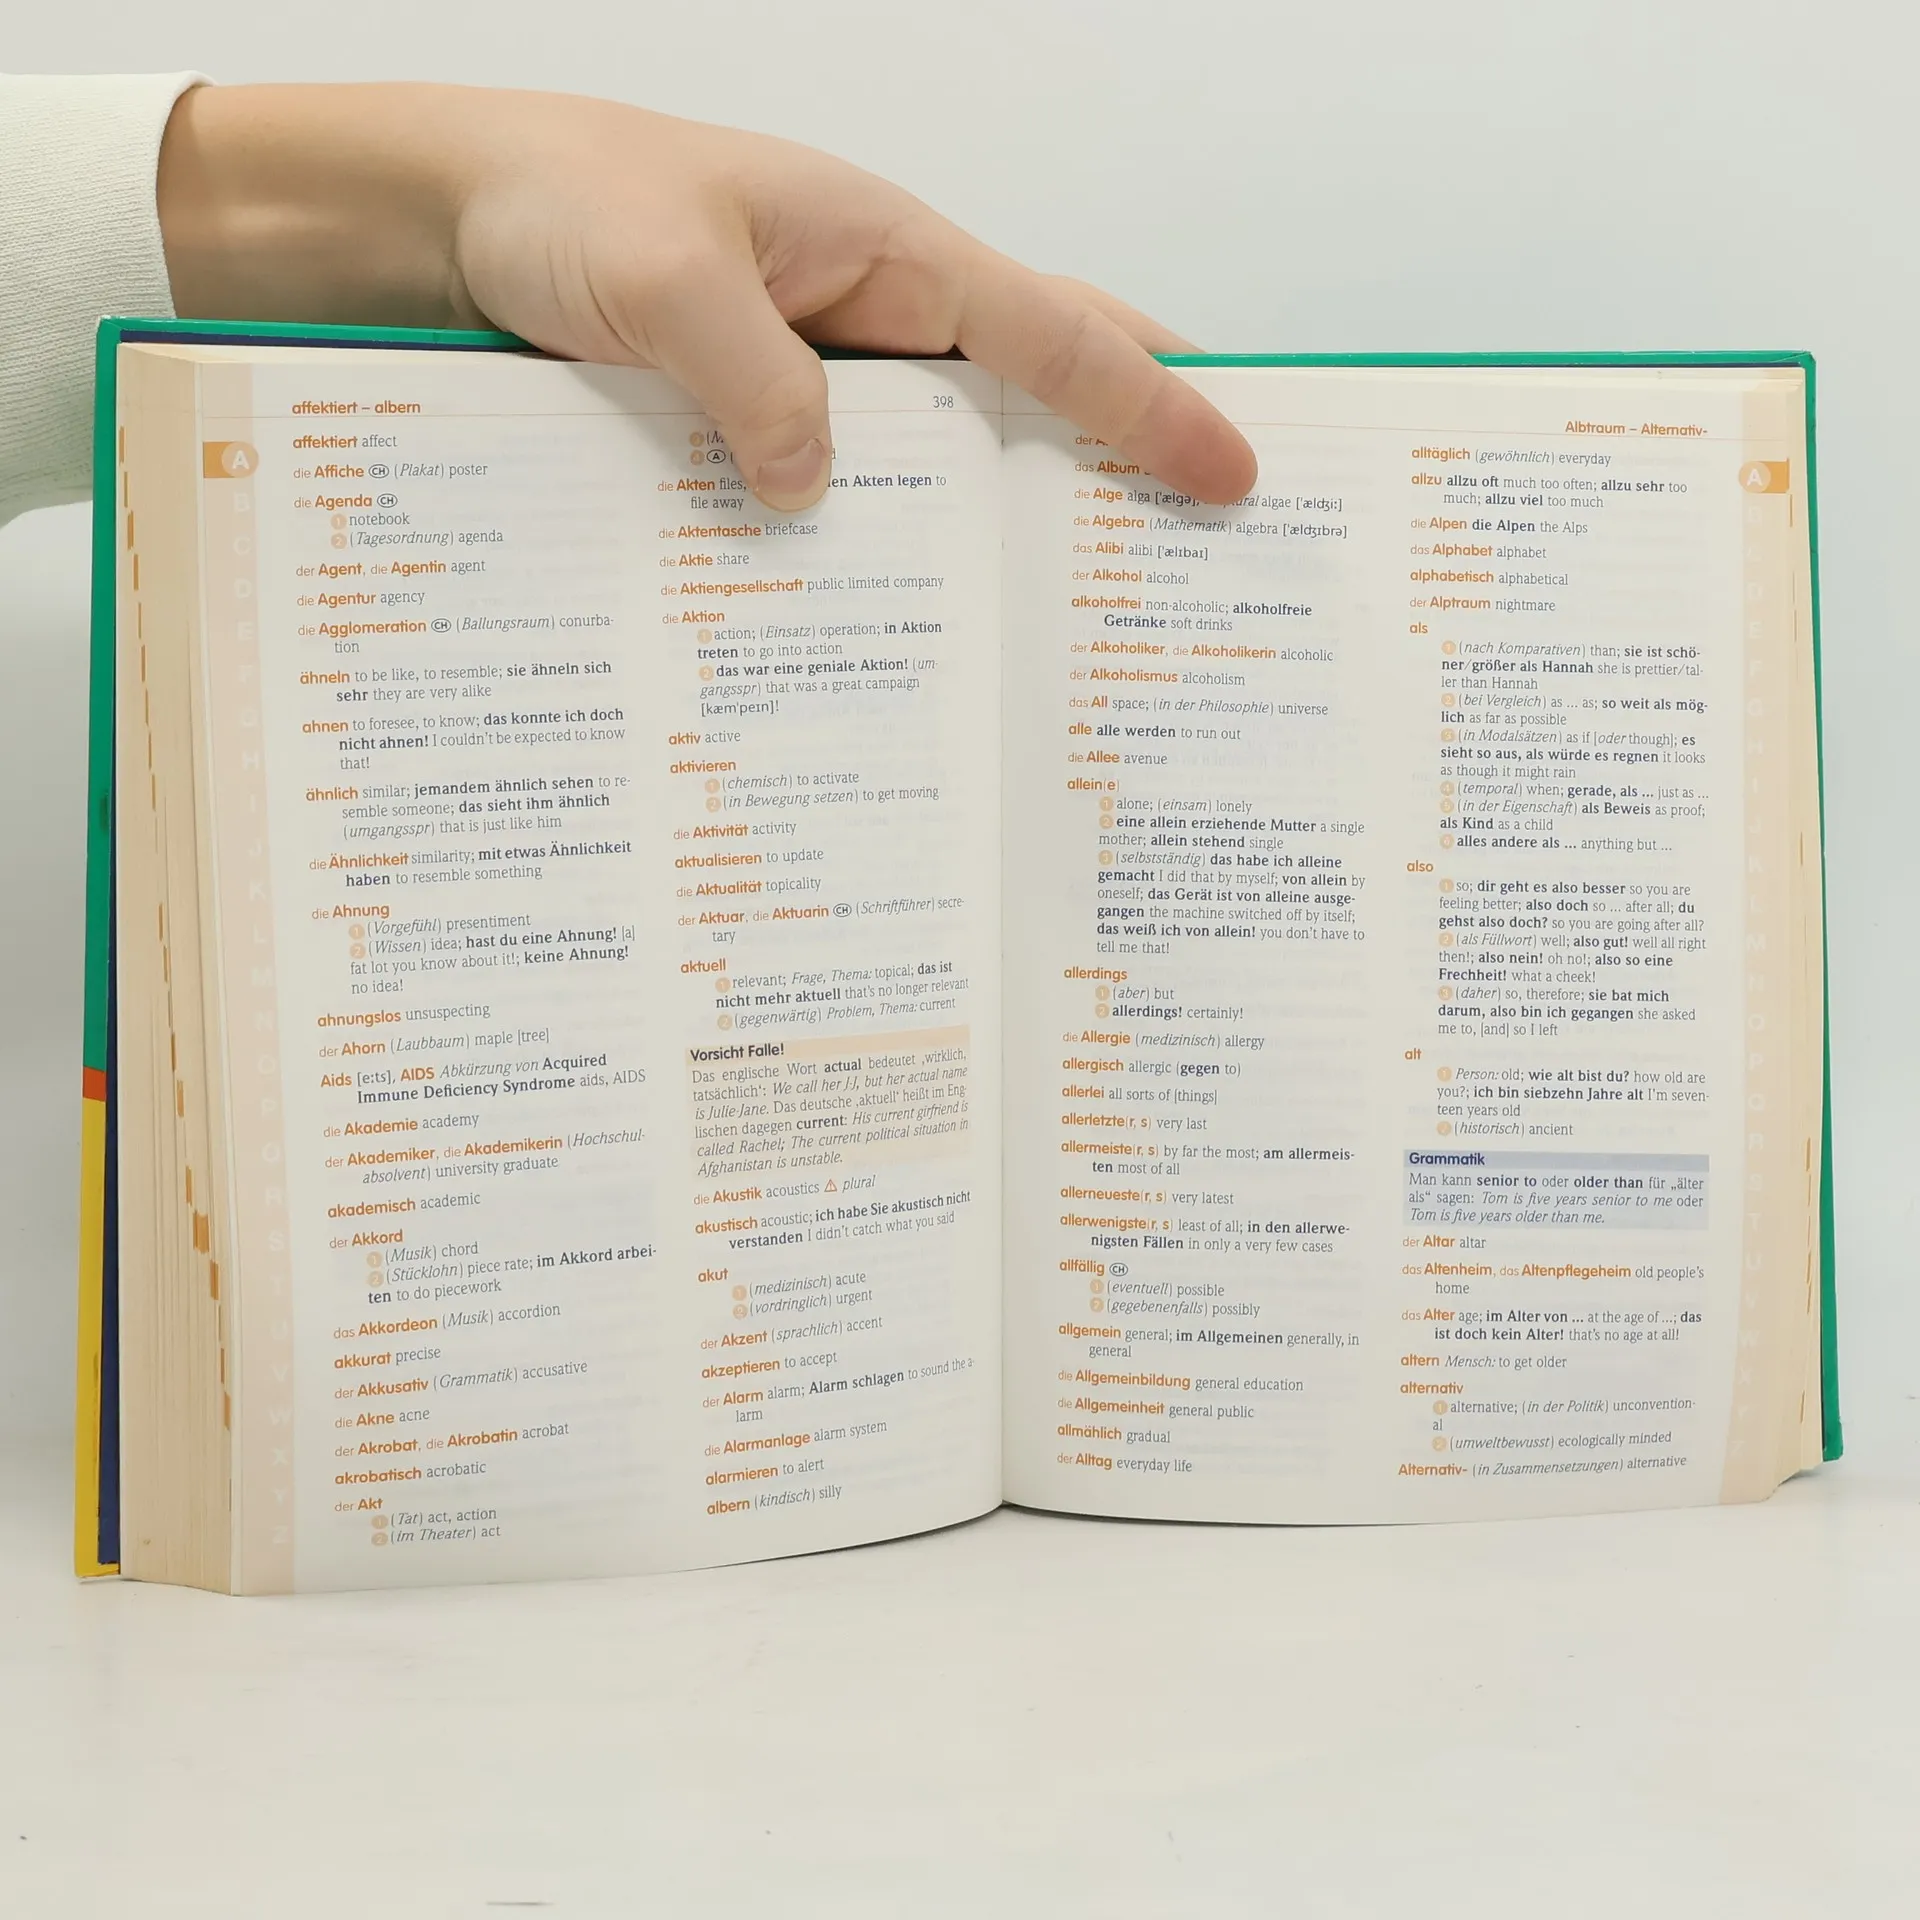 affektiert – albern
398
A
affektiert affect
die Affiche CH (Plakat) poster
die Agenda CH
1 notebook
2 (Tagesordnung) agenda
der Agent, die Agentin agent
die Agentur agency
die Agglomeration CH (Ballungsraum) conurba-
tion
ähneln to be like, to resemble; sie ähneln sich
sehr they are very alike
ahnen to foresee, to know; das konnte ich doch
nicht ahnen! I couldn't be expected to know
that!
ähnlich similar; jemandem ähnlich sehen to re-
semble someone; das sieht ihm ähnlich
(umgangsspr) that is just like him
die Ähnlichkeit similarity; mit etwas Ähnlichkeit
haben to resemble something
die Ahnung
1 (Vorgefühl) presentiment
2 (Wissen) idea; hast du eine Ahnung! [a]
fat lot you know about it!; keine Ahnung!
no idea!
ahnungslos unsuspecting
der Ahorn (Laubbaum) maple [tree]
Aids [e:ts], AIDS Abkürzung von Acquired
Immune Deficiency Syndrome aids, AIDS
die Akademie academy
der Akademiker, die Akademikerin (Hochschul-
absolvent) university graduate
akademisch academic
der Akkord
1 (Musik) chord
2 (Stücklohn) piece rate; im Akkord arbei-
ten to do piecework
das Akkordeon (Musik) accordion
akkurat precise
der Akkusativ (Grammatik) accusative
die Akne acne
der Akrobat, die Akrobatin acrobat
akrobatisch acrobatic
der Akt
1 (Tat) act, action
2 (im Theater) act
3 (M
4 A (
die Akten files, den Akten legen to
file away
die Aktentasche briefcase
die Aktie share
die Aktiengesellschaft public limited company
die Aktion
1 action; (Einsatz) operation; in Aktion
treten to go into action
2 das war eine geniale Aktion! (um-
gangsspr) that was a great campaign
[kæm'peɪn]!
aktiv active
aktivieren
1 (chemisch) to activate
2 (in Bewegung setzen) to get moving
die Aktivität activity
aktualisieren to update
die Aktualität topicality
der Aktuar, die Aktuarin CH (Schriftführer) secre-
tary
aktuell
1 relevant; Frage, Thema: topical; das ist
nicht mehr aktuell that's no longer relevant
2 (gegenwärtig) Problem, Thema: current
Vorsicht Falle!
Das englische Wort actual bedeutet ‚wirklich,
tatsächlich': We call her J-J, but her actual name
is Julie-Jane. Das deutsche ‚aktuell' heißt im Eng-
lischen dagegen current: His current girlfriend is
called Rachel; The current political situation in
Afghanistan is unstable.
die Akustik acoustics ⚠ plural
akustisch acoustic; ich habe Sie akustisch nicht
verstanden I didn't catch what you said
akut
1 (medizinisch) acute
2 (vordringlich) urgent
der Akzent (sprachlich) accent
akzeptieren to accept
der Alarm alarm; Alarm schlagen to sound the a-
larm
die Alarmanlage alarm system
alarmieren to alert
albern (kindisch) silly
Albtraum – Alternativ-
A
der A
das Album
die Alge alga ['ælgə], plural algae ['ældʒi:]
die Algebra (Mathematik) algebra ['ældʒɪbrə]
das Alibi alibi ['ælɪbaɪ]
der Alkohol alcohol
alkoholfrei non-alcoholic; alkoholfreie
Getränke soft drinks
der Alkoholiker, die Alkoholikerin alcoholic
der Alkoholismus alcoholism
das All space; (in der Philosophie) universe
alle alle werden to run out
die Allee avenue
allein(e)
1 alone; (einsam) lonely
2 eine allein erziehende Mutter a single
mother; allein stehend single
3 (selbstständig) das habe ich alleine
gemacht I did that by myself; von allein by
oneself; das Gerät ist von alleine ausge-
gangen the machine switched off by itself;
das weiß ich von allein! you don't have to
tell me that!
allerdings
1 (aber) but
2 allerdings! certainly!
die Allergie (medizinisch) allergy
allergisch allergic (gegen to)
allerlei all sorts of [things]
allerletzte(r, s) very last
allermeiste(r, s) by far the most; am allermeis-
ten most of all
allerneueste(r, s) very latest
allerwenigste(r, s) least of all; in den allerwe-
nigsten Fällen in only a very few cases
allfällig CH
1 (eventuell) possible
2 (gegebenenfalls) possibly
allgemein general; im Allgemeinen generally, in
general
die Allgemeinbildung general education
die Allgemeinheit general public
allmählich gradual
der Alltag everyday life
alltäglich (gewöhnlich) everyday
allzu allzu oft much too often; allzu sehr too
much; allzu viel too much
die Alpen die Alpen the Alps
das Alphabet alphabet
alphabetisch alphabetical
der Alptraum nightmare
als
1 (nach Komparativen) than; sie ist schö-
ner/größer als Hannah she is prettier/tal-
ler than Hannah
2 (bei Vergleich) as ... as; so weit als mög-
lich as far as possible
3 (in Modalsätzen) as if [oder though]; es
sieht so aus, als würde es regnen it looks
as though it might rain
4 (temporal) when; gerade, als ... just as ...
5 (in der Eigenschaft) als Beweis as proof;
als Kind as a child
6 alles andere als ... anything but ...
also
1 so; dir geht es also besser so you are
feeling better; also doch so ... after all; du
gehst also doch? so you are going after all?
2 (als Füllwort) well; also gut! well all right
then!; also nein! oh no!; also so eine
Frechheit! what a cheek!
3 (daher) so, therefore; sie bat mich
darum, also bin ich gegangen she asked
me to, [and] so I left
alt
1 Person: old; wie alt bist du? how old are
you?; ich bin siebzehn Jahre alt I'm seven-
teen years old
2 (historisch) ancient
Grammatik
Man kann senior to oder older than für „älter
als" sagen: Tom is five years senior to me oder
Tom is five years older than me.
der Altar altar
das Altenheim, das Altenpflegeheim old people's
home
das Alter age; im Alter von ... at the age of ...; das
ist doch kein Alter! that's no age at all!
altern Mensch: to get older
alternativ
1 alternative; (in der Politik) unconvention-
al
2 (umweltbewusst) ecologically minded
Alternativ- (in Zusammensetzungen) alternative